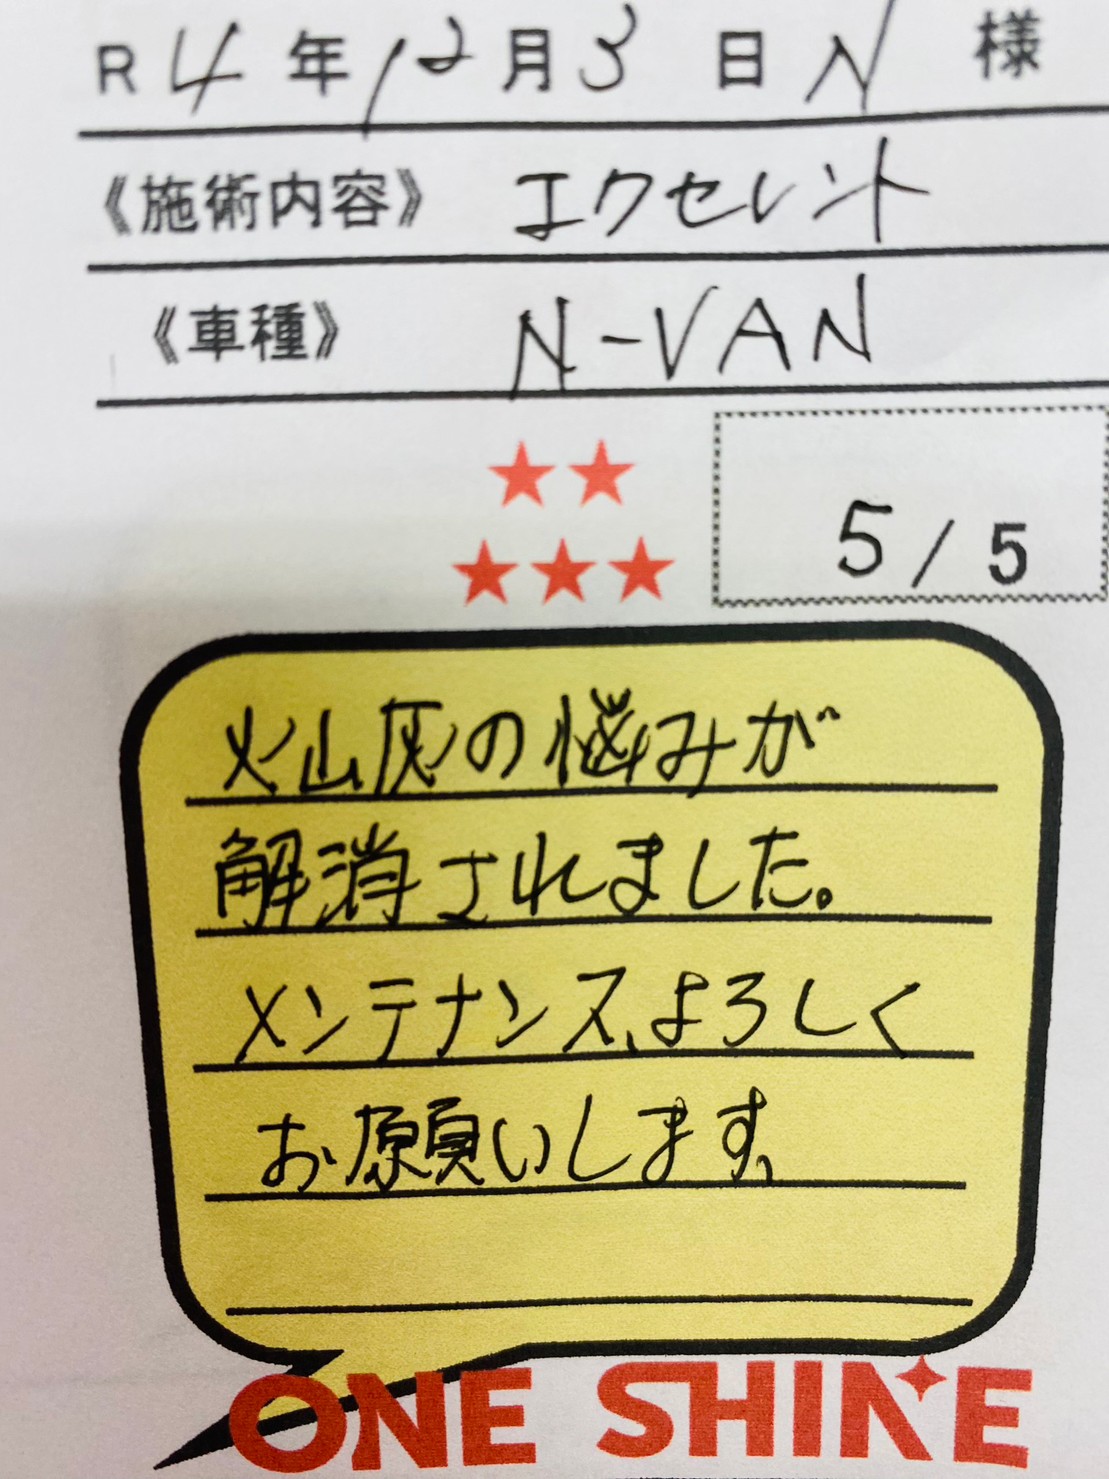 R 4 年 12 月 3 日 N 様
《施術内容》 エクセレント
《車種》 N-VAN
★★
★★★
5 / 5
火山灰の悩みが
解消されました。
メンテナンス、よろしく
お願いします、
ONE SHINE